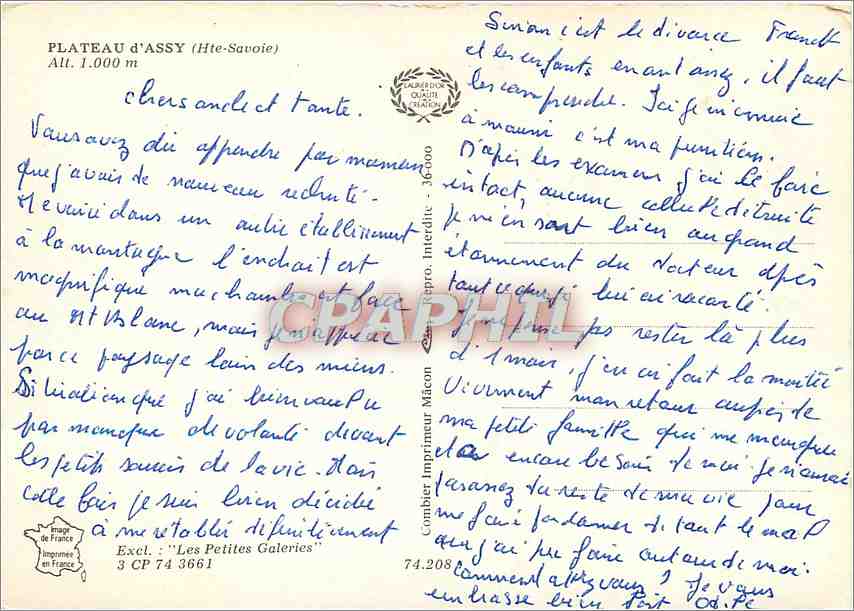 PLATEAU d'ASSY (Hte-Savoie)
Alt. 1.000 m
LAURIER D'OR
DE LA
QUALITÉ
DE
CRÉATION
chers oncle et tante.
Vous avez dû apprendre par maman
que j'avais de nouveau rechuté.
Me voici dans un autre établissement
à la montagne l'endroit est
magnifique ma chambre est face
au Mt Blanc, mais je n'apprécie
pas ce paysage loin des miens.
Situation que j'ai bien voulu
par manque de volonté devant
les petits soucis de la vie. Mais
cette fois je suis bien décidé
à me rétablir définitivement
Sinon c'est le divorce Franck
et les enfants en ont assez, il faut
les comprendre. J'ai je
à mourir c'est ma punition.
D'après les examens j'ai le foie
intact, aucune cellule détruite
je m'en sort bien au grand
étonnement du docteur après
tout ce que je lui ai raconté.
Je ne pense pas rester là plus
d'1 mois, j'en ai fait la moitié
Vivement mon retour auprès de
ma petite famille qui me manque
et a encore besoin de moi. Je n'aurai
pas assez du reste de ma vie pour
me faire pardonner de tout le mal
que j'ai pu faire autour de moi.
Comment allez vous? Je vous
embrasse bien fort
Combier Imprimeur Mâcon
Repro. Interdite - 36-000
CPAPHIL
Image
de France
Imprimée
en France
Excl. : "Les Petites Galeries"
3 CP 74 3661
74.208